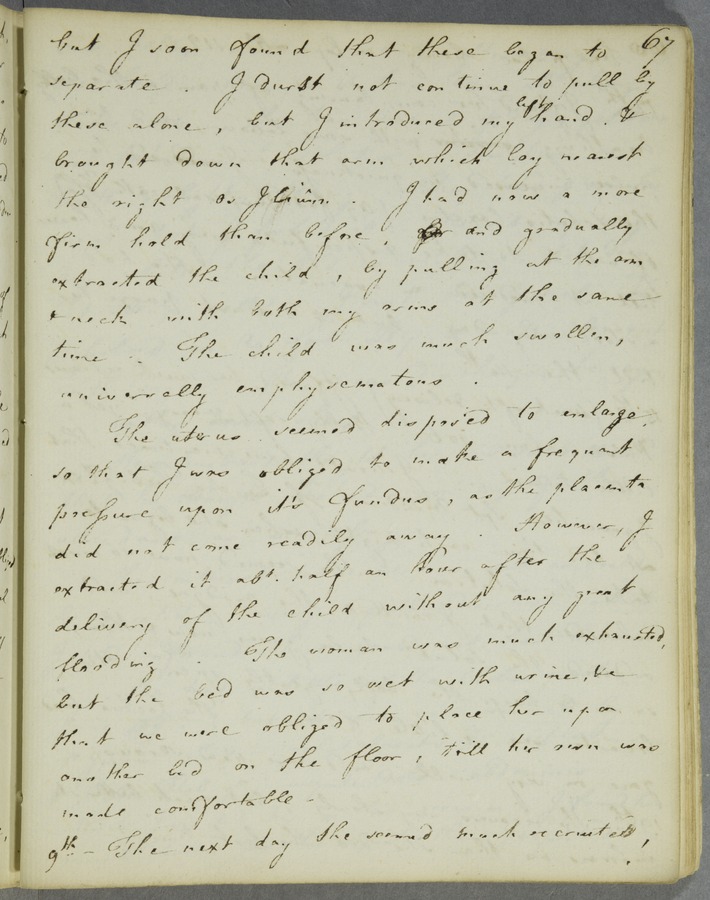 67
but I soon found that these began to
separate. I durst not continue to pull by
these alone, but I introduced my left hand, &
brought down that arm which lay nearest
the right os Ilium. I had now a more
firm hold than before, and gradually
extracted the child, by pulling at the arm
& neck with both my arms at the same
time. The child was much swollen,
universally emphysematous.
The uterus seemed disposed to enlarge,
so that I was obliged to make a frequent
pressure upon it's fundus, as the placenta
did not come readily away. However, I
extracted it abt. half an hour after the
delivery of the child without any great
flooding. The woman was much exhausted,
but the bed was so wet with urine, &c
that we were obliged to place her upon
another bed on the floor, till her own was
made comfortable.
9th - The next day she seemed much recruited,